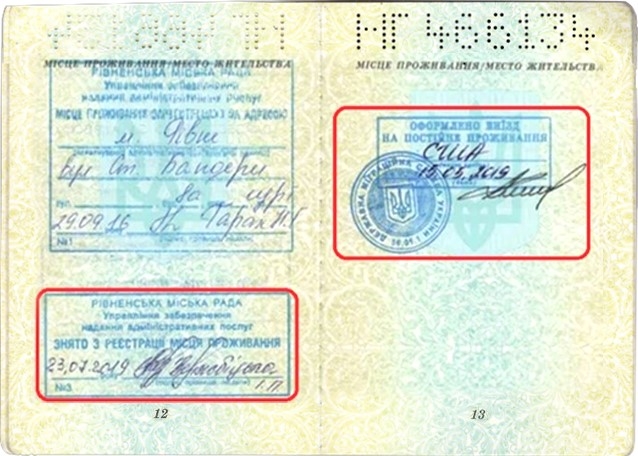 МІСЦЕ ПРОЖИВАННЯ/МЕСТО ЖИТЕЛЬСТВА
РІВНЕНСЬКА МІСЬКА РАДА
Управління забезпечення
надання адміністративних послуг
МІСЦЕ ПРОЖИВАННЯ ЗАРЕЄСТРОВАНО ЗА АДРЕСОЮ:
м. Рівне
вул Ст. Бандери
29.09.16
№1
РІВНЕНСЬКА МІСЬКА РАДА
Управління забезпечення
надання адміністративних послуг
ЗНЯТО З РЕЄСТРАЦІЇ МІСЦЯ ПРОЖИВАННЯ
23.07.2019
№3
12
НГ 466134
МІСЦЕ ПРОЖИВАННЯ/МЕСТО ЖИТЕЛЬСТВА
ОФОРМЛЕНО ВИЇЗД
НА ПОСТІЙНЕ ПРОЖИВАННЯ
США
15.05.2019
ДЕРЖАВНА МІГРАЦІЙНА СЛУЖБА УКРАЇНИ
13